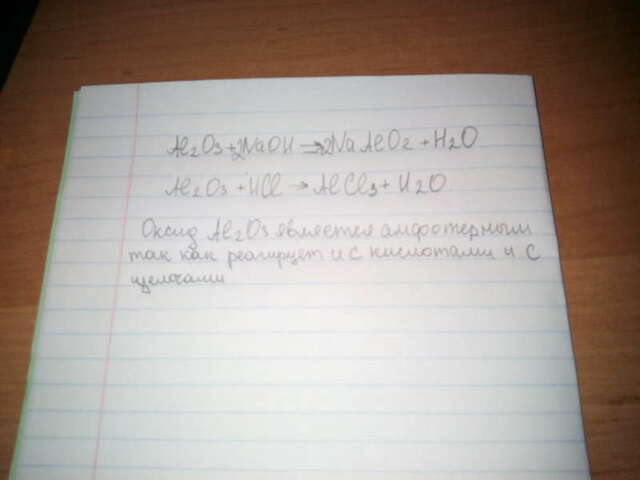 Al₂O₃ + 2NaOH → 2NaAlO₂ + H₂O
Al₂O₃ + HCl → AlCl₃ + H₂O
Оксид Al₂O₃ является амфотерным
так как реагирует и с кислотами и с
щелочами